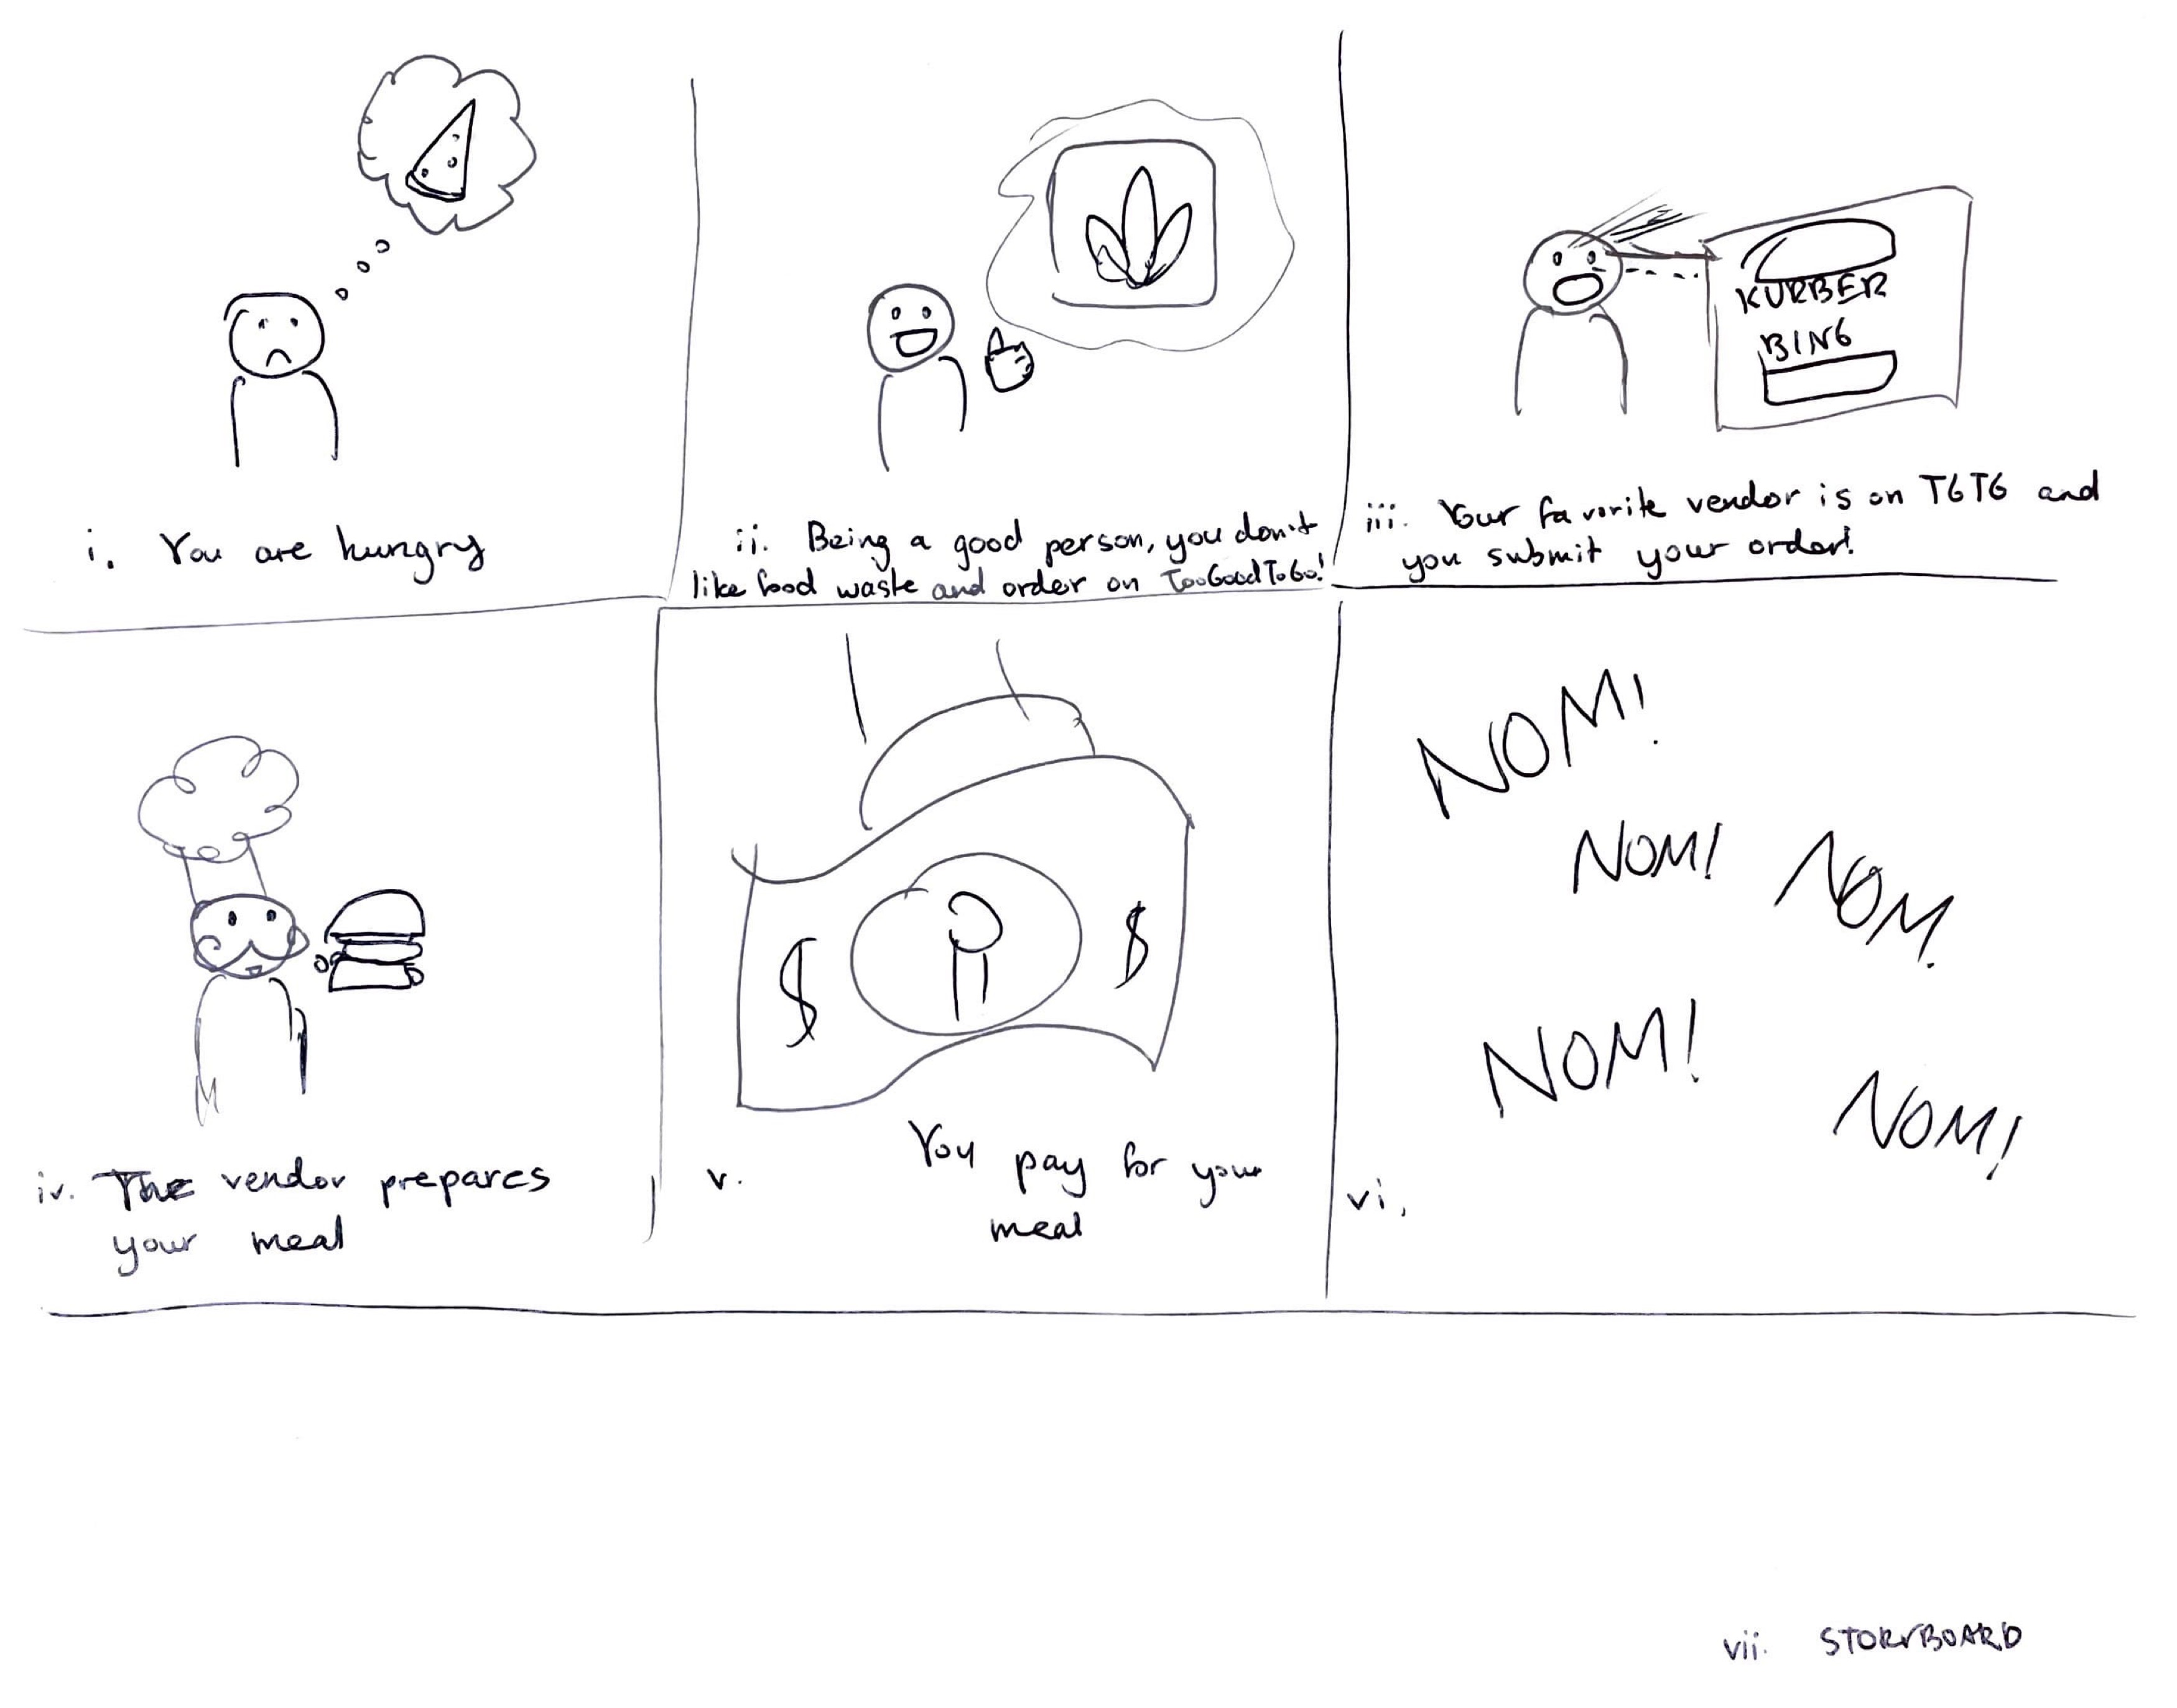 i. You are hungry
ii. Being a good person, you don't
like food waste and order on TooGoodToGo!
KURBER
BING
iii. Your favorite vendor is on TGTG and
you submit your order!
iv. The vendor prepares
your meal
$ $
v. You pay for your
meal
NOM!
NOM!
NOM!
NOM!
NOM!
vi.
vii. STORYBOARD